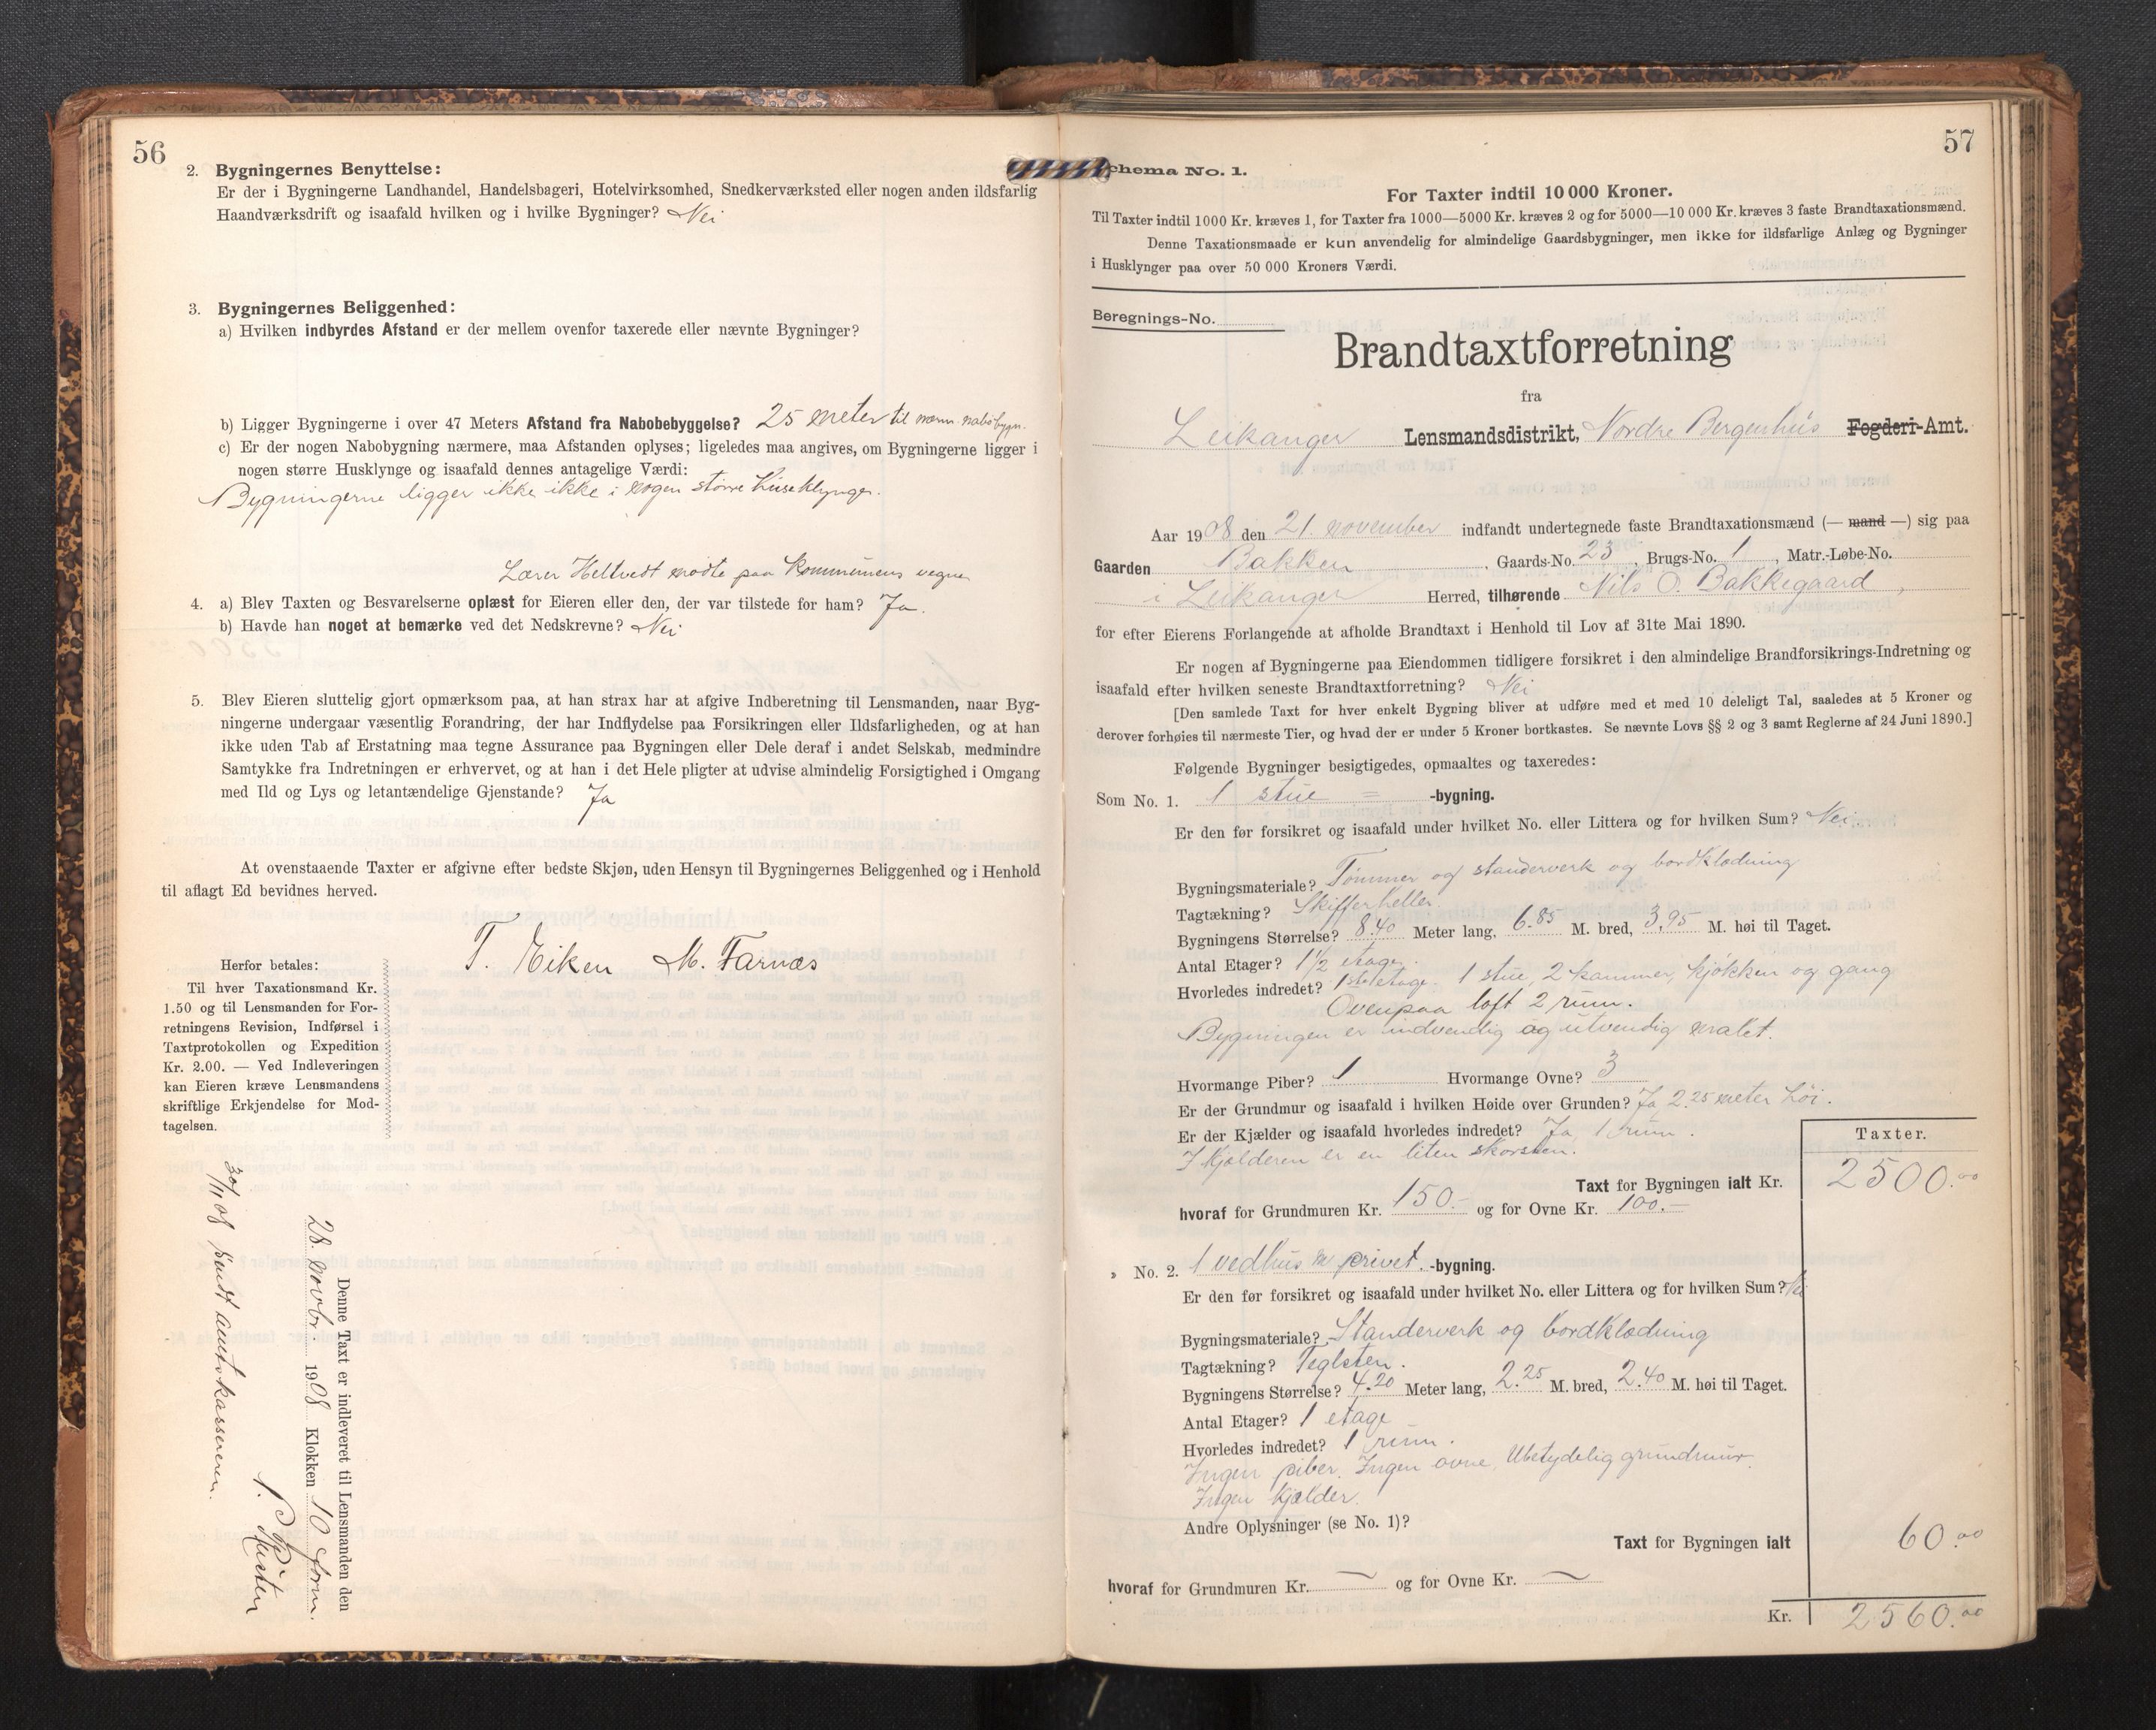 56
2. Bygningernes Benyttelse:
Er der i Bygningerne Landhandel, Handelsbageri, Hotelvirksomhed, Snedkerværksted eller nogen anden ildsfarlig
Haandværksdrift og isaafald hvilken og i hvilke Bygninger? Nei
3. Bygningernes Beliggenhed:
a) Hvilken indbyrdes Afstand er der mellem ovenfor taxerede eller nævnte Bygninger?
b) Ligger Bygningerne i over 47 Meters Afstand fra Nabobebyggelse? 25 meter til nærm. nabobygn.
c) Er der nogen Nabobygning nærmere, maa Afstanden oplyses; ligeledes maa angives, om Bygningerne ligger i
nogen større Husklynge og isaafald dennes antagelige Værdi:
Bygningerne ligger ikke ikke i nogen större huseklynge.
Lærer Heltvedt mødte paa kommunens vegne
4. a) Blev Taxten og Besvarelserne oplæst for Eieren eller den, der var tilstede for ham? Ja.
b) Havde han noget at bemærke ved det Nedskrevne? Nei
5. Blev Eieren sluttelig gjort opmærksom paa, at han strax har at afgive Indberetning til Lensmanden, naar Byg-
ningerne undergaar væsentlig Forandring, der har Indflydelse paa Forsikringen eller Ildsfarligheden, og at han
ikke uden Tab af Erstatning maa tegne Assurance paa Bygningen eller Dele deraf i andet Selskab, medmindre
Samtykke fra Indretningen er erhvervet, og at han i det Hele pligter at udvise almindelig Forsigtighed i Omgang
med Ild og Lys og letantændelige Gjenstande? Ja
At ovenstaaende Taxter er afgivne efter bedste Skjøn, uden Hensyn til Bygningernes Beliggenhed og i Henhold
til aflagt Ed bevidnes herved.
T. Eiken M. Farnæs
Herfor betales:
Til hver Taxationsmand Kr.
1.50 og til Lensmanden for For-
retningens Revision, Indførsel i
Taxtprotokollen og Expedition
Kr. 2.00. — Ved Indleveringen
kan Eieren kræve Lensmandens
skriftlige Erkjendelse for Mod-
tagelsen.
Denne Taxt er indleveret til Lensmanden den
28. novbr. 1908 Klokken 10 form.
30/11 08 sendt amtskassereren.
57
Schema No. 1.
For Taxter indtil 10 000 Kroner.
Til Taxter indtil 1000 Kr. kræves 1, for Taxter fra 1000—5000 Kr. kræves 2 og for 5000—10 000 Kr. kræves 3 faste Brandtaxationsmænd.
Denne Taxationsmaade er kun anvendelig for almindelige Gaardsbygninger, men ikke for ildsfarlige Anlæg og Bygninger
i Husklynger paa over 50 000 Kroners Værdi.
Beregnings-No.
Brandtaxtforretning
fra
Leikanger Lensmandsdistrikt, Nordre Bergenhus Fogderi-Amt.
Aar 1908 den 21. november indfandt undertegnede faste Brandtaxationsmænd (— mand —) sig paa
Gaarden Bakken, Gaards-No. 23, Brugs-No. 1, Matr.-Løbe-No.
i Leikanger Herred, tilhørende Nils O. Bakkegaard,
for efter Eierens Forlangende at afholde Brandtaxt i Henhold til Lov af 31te Mai 1890.
Er nogen af Bygningerne paa Eiendommen tidligere forsikret i den almindelige Brandforsikrings-Indretning og
isaafald efter hvilken seneste Brandtaxtforretning? Nei
[Den samlede Taxt for hver enkelt Bygning bliver at udføre med et med 10 deleligt Tal, saaledes at 5 Kroner og
derover forhøies til nærmeste Tier, og hvad der er under 5 Kroner bortkastes. Se nævnte Lovs §§ 2 og 3 samt Reglerne af 24 Juni 1890.]
Følgende Bygninger besigtigedes, opmaaltes og taxeredes:
Som No. 1. 1 stue = -bygning.
Er den før forsikret og isaafald under hvilket No. eller Littera og for hvilken Sum? Nei.
Bygningsmateriale? Tömmer og standerverk og bordklædning
Tagtækning? Skifferheller.
Bygningens Størrelse? 8.40 Meter lang, 6.85 M. bred, 3.95 M. høi til Taget.
Antal Etager? 1 1/2 etage.
Hvorledes indredet? 1ste etage. 1 stue, 2 kammer, kjøkken og gang
Ovenpaa loft 2 rum.
Bygningen er indvendig og utvendig malet.
Hvormange Piber? 1 Hvormange Ovne? 3
Er der Grundmur og isaafald i hvilken Høide over Grunden? Ja, 2.25 meter höi.
Er der Kjælder og isaafald hvorledes indredet? Ja, 1 rum.
I kjælderen er en liten skorsten.
Taxter.
Taxt for Bygningen ialt Kr. 2500.00
hvoraf for Grundmuren Kr. 150.- og for Ovne Kr. 100.-
" No. 2. 1 vedhus m privet. -bygning.
Er den før forsikret og isaafald under hvilket No. eller Littera og for hvilken Sum? Nei
Bygningsmateriale? Standerverk og bordklædning
Tagtækning? Teglsten.
Bygningens Størrelse? 4.20 Meter lang, 2.25 M. bred, 2.40 M. høi til Taget.
Antal Etager? 1 etage
Hvorledes indredet? 1 rum.
Ingen piber. Ingen ovne. Ubetydelig grundmur.
Ingen kjælder.
Andre Oplysninger (se No. 1)?
Taxt for Bygningen ialt 60.00
hvoraf for Grundmuren Kr. — og for Ovne Kr. —
Kr. 2560.00